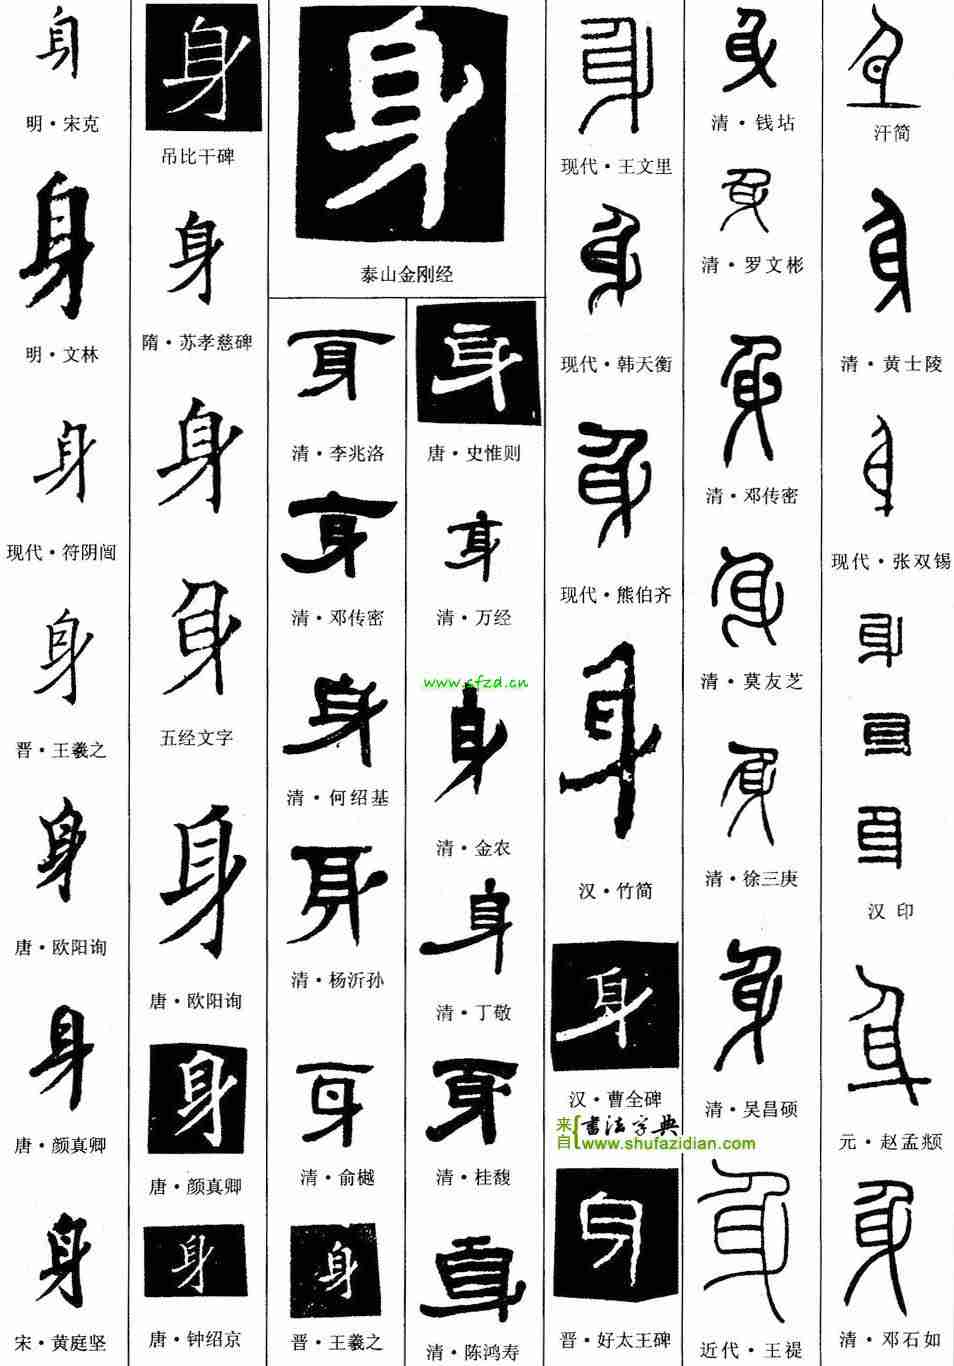 身
汗简
身
清·黄士陵
身
现代·张双锡
身
身
身
汉印
身
元·赵孟頫
身
清·邓石如
身
清·钱坫
身
清·罗文彬
身
清·邓传密
身
清·莫友芝
身
清·徐三庚
身
清·吴昌硕
身
近代·王禔
身
现代·王文里
身
现代·韩天衡
身
现代·熊伯齐
身
汉·竹简
身
汉·曹全碑
来自{书法字典
www.shufazidian.com
身
晋·好太王碑
身
泰山金刚经
身
唐·史惟则
身
清·万经
www.sfzd.cn
身
清·金农
身
清·丁敬
身
清·桂馥
身
清·陈鸿寿
身
清·李兆洛
身
清·邓传密
身
清·何绍基
身
清·杨沂孙
身
清·俞樾
身
晋·王羲之
身
吊比干碑
身
隋·苏孝慈碑
身
五经文字
身
唐·欧阳询
身
唐·颜真卿
身
唐·钟绍京
身
明·宋克
身
明·文林
身
现代·符阴闿
身
晋·王羲之
身
唐·欧阳询
身
唐·颜真卿
身
宋·黄庭坚